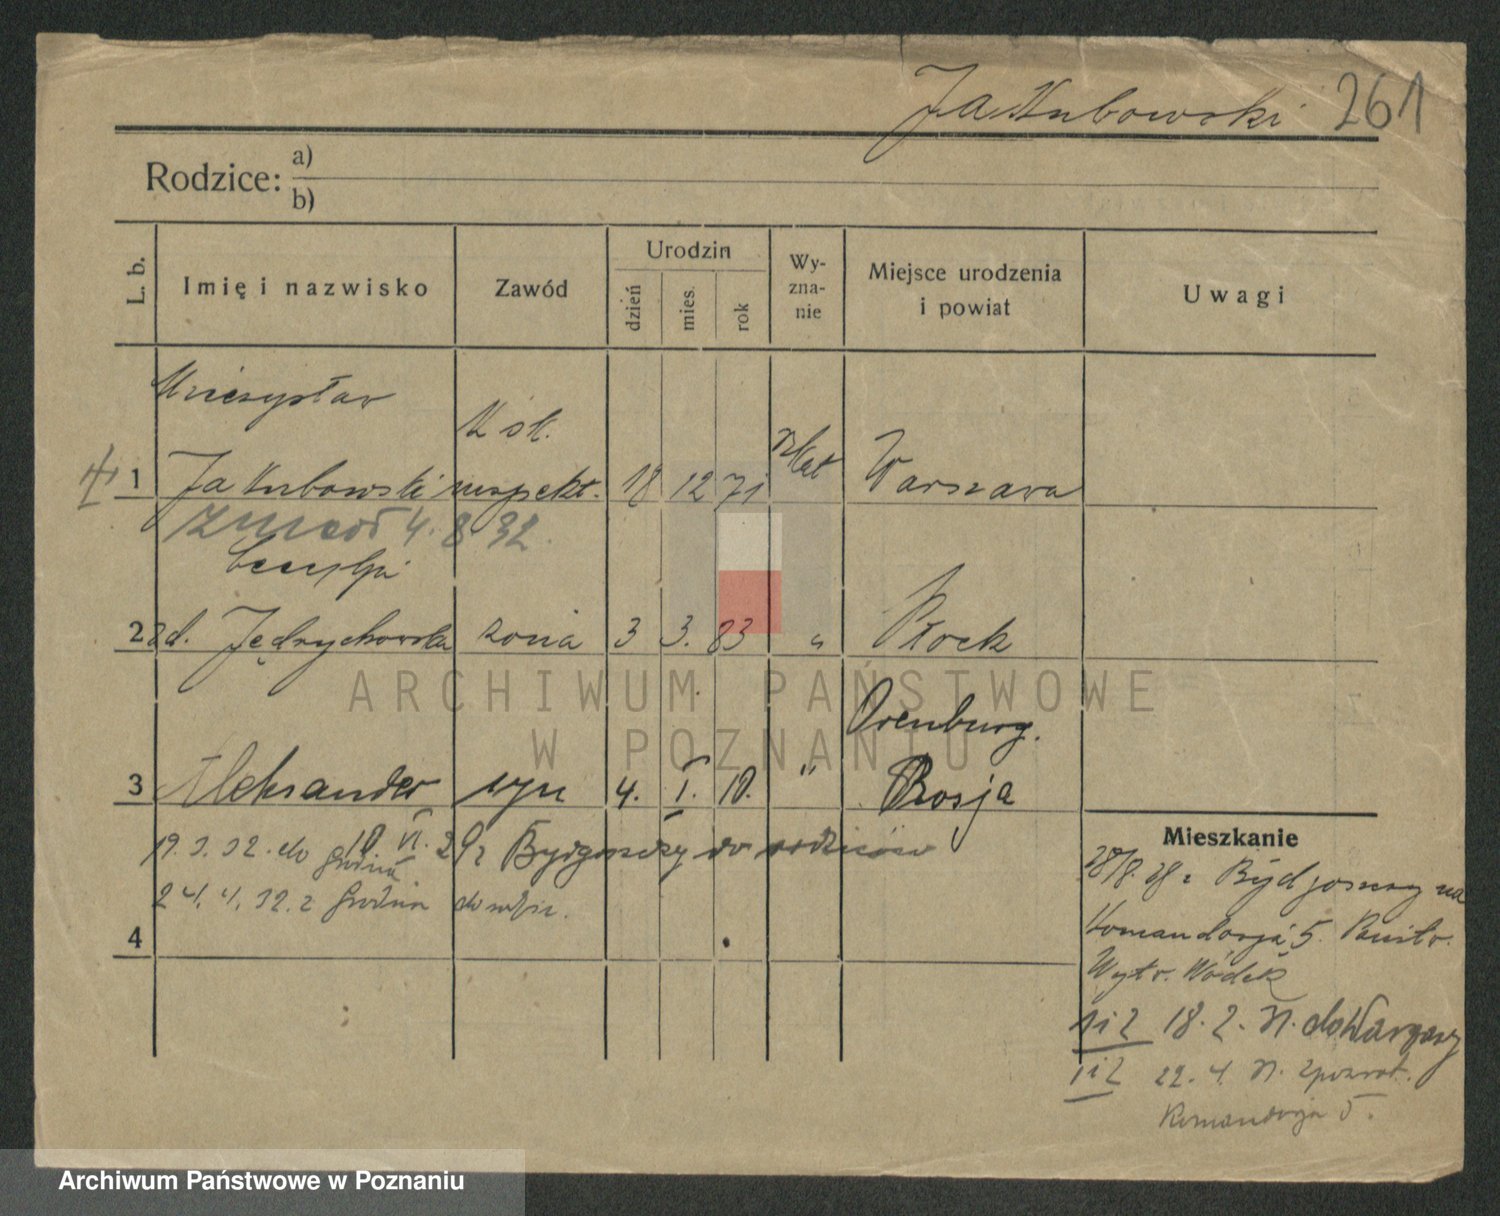 Jakubowski 261
Rodzice: a)
b)
L. b.
Imię i nazwisko
Zawód
Urodzin
dzień
mies.
rok
Wy-
zna-
nie
Miejsce urodzenia
i powiat
Uwagi
Mieczysław
1 Jakubowski inspekt. 18 12 71 Warszawa
zmarł 4. 8 32.
2 zd. Jędrychowska żona 3 3. 83 " Płock
Orenburg.
3 Aleksander syn 4. I. 10. " Rosja
10. VI. 29 z Bydgoszczy do rodziców
19. 3. 32. do Grodna
24. 4. 32. z Grodna do rodzic.
4
Mieszkanie
28/8. 28 z Bydgoszczy na
Komandorja 5.
Wytw. Wódek
1 i 2 18. 2. 31. do Warszawy
1 i 2 22. 4. 31. z powrot.
Komandorja 5.
ARCHIWUM PAŃSTWOWE
W POZNANIU
Archiwum Państwowe w Poznaniu